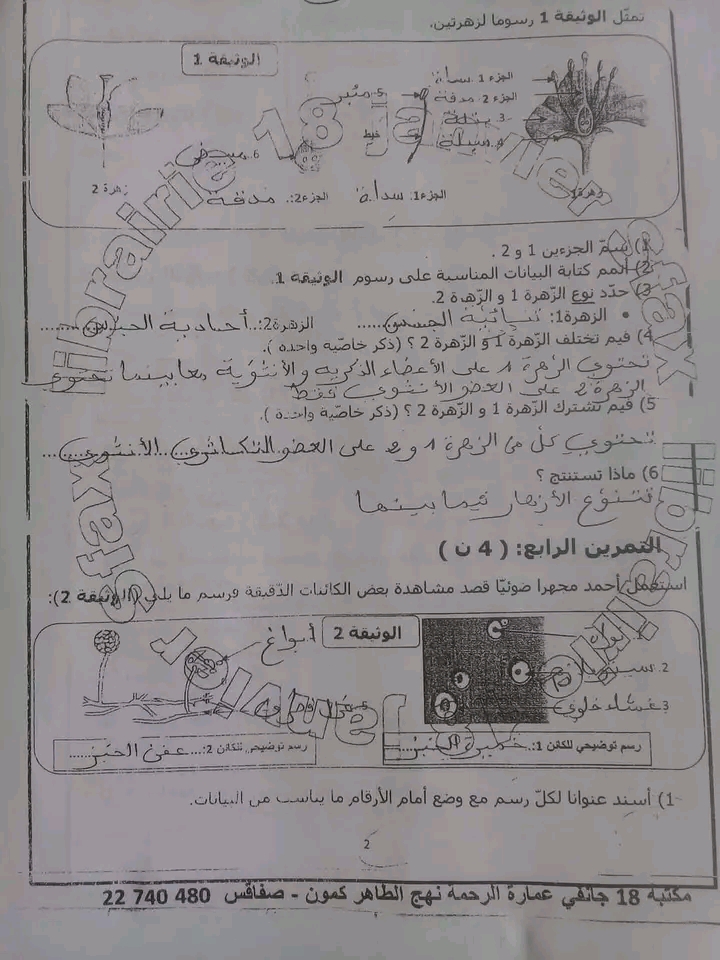 تمثّل الوثيقة 1 رسوما لزهرتين.
الوثيقة 1
الجزء 1 سداة
الجزء 2 مدقة
3 بتلة
4 سبلة
5 مئبر
خيط
6 مبيض
زهرة 2
زهرة 1
الجزء1: سداة
الجزء2: مدقة
1) سمّ الجزءين 1 و 2 .
2) أتمم كتابة البيانات المناسبة على رسوم الوثيقة 1.
3) حدّد نوع الزّهرة 1 و الزّهرة 2.
• الزهرة1: ثنائية الجنس...... الزهرة2:..أحادية الجنس........
4) فيم تختلف الزّهرة 1 و الزّهرة 2 ؟ (ذكر خاصّيه واحدة ).
تحتوي الزهرة 1 على الأعضاء الذكرية و الأنثوية معا بينما تحتوي
الزهرة 2 على العضو الأنثوي فقط
5) فيم تشترك الزّهرة 1 و الزّهرة 2 ؟ (ذكر خاصّية واحدة ).
تحتوي كل من الزهرة 1 و 2 على العضو التكاثري الأنثوي
6) ماذا تستنتج ؟
تتنوع الأزهار فيما بينها
التمرين الرابع: ( 4 ن )
استعمل أحمد مجهرا ضوئيّا قصد مشاهدة بعض الكائنات الدّقيقة فرسم ما يلي (الوثيقة 2):
الوثيقة 2
أبواغ
2.
3 غشاء خلوي
5
رسم توضيحي للكائن 1:..خميرة الخبز...
رسم توضيحي للكائن 2:...عفن الخبز......
1) أسند عنوانا لكلّ رسم مع وضع أمام الأرقام ما يناسب من البيانات.
2
مكتبة 18 جانفي عمارة الرحمة نهج الطاهر كمون - صفاقس 480 740 22
librairie 18 janvier sfax